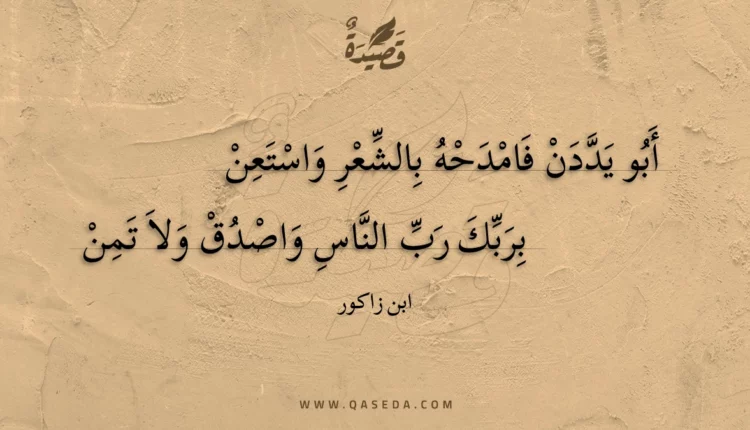 قَصِيْدَةٌ
أَبُو يَدَّدَنْ فَامْدَحْهُ بِالشِّعْرِ وَاسْتَعِنْ
بِرَبِّكَ رَبِّ النَّاسِ وَاصْدُقْ وَلاَ تَمِنْ
ابن زاكور
WWW.QASEDA.COM